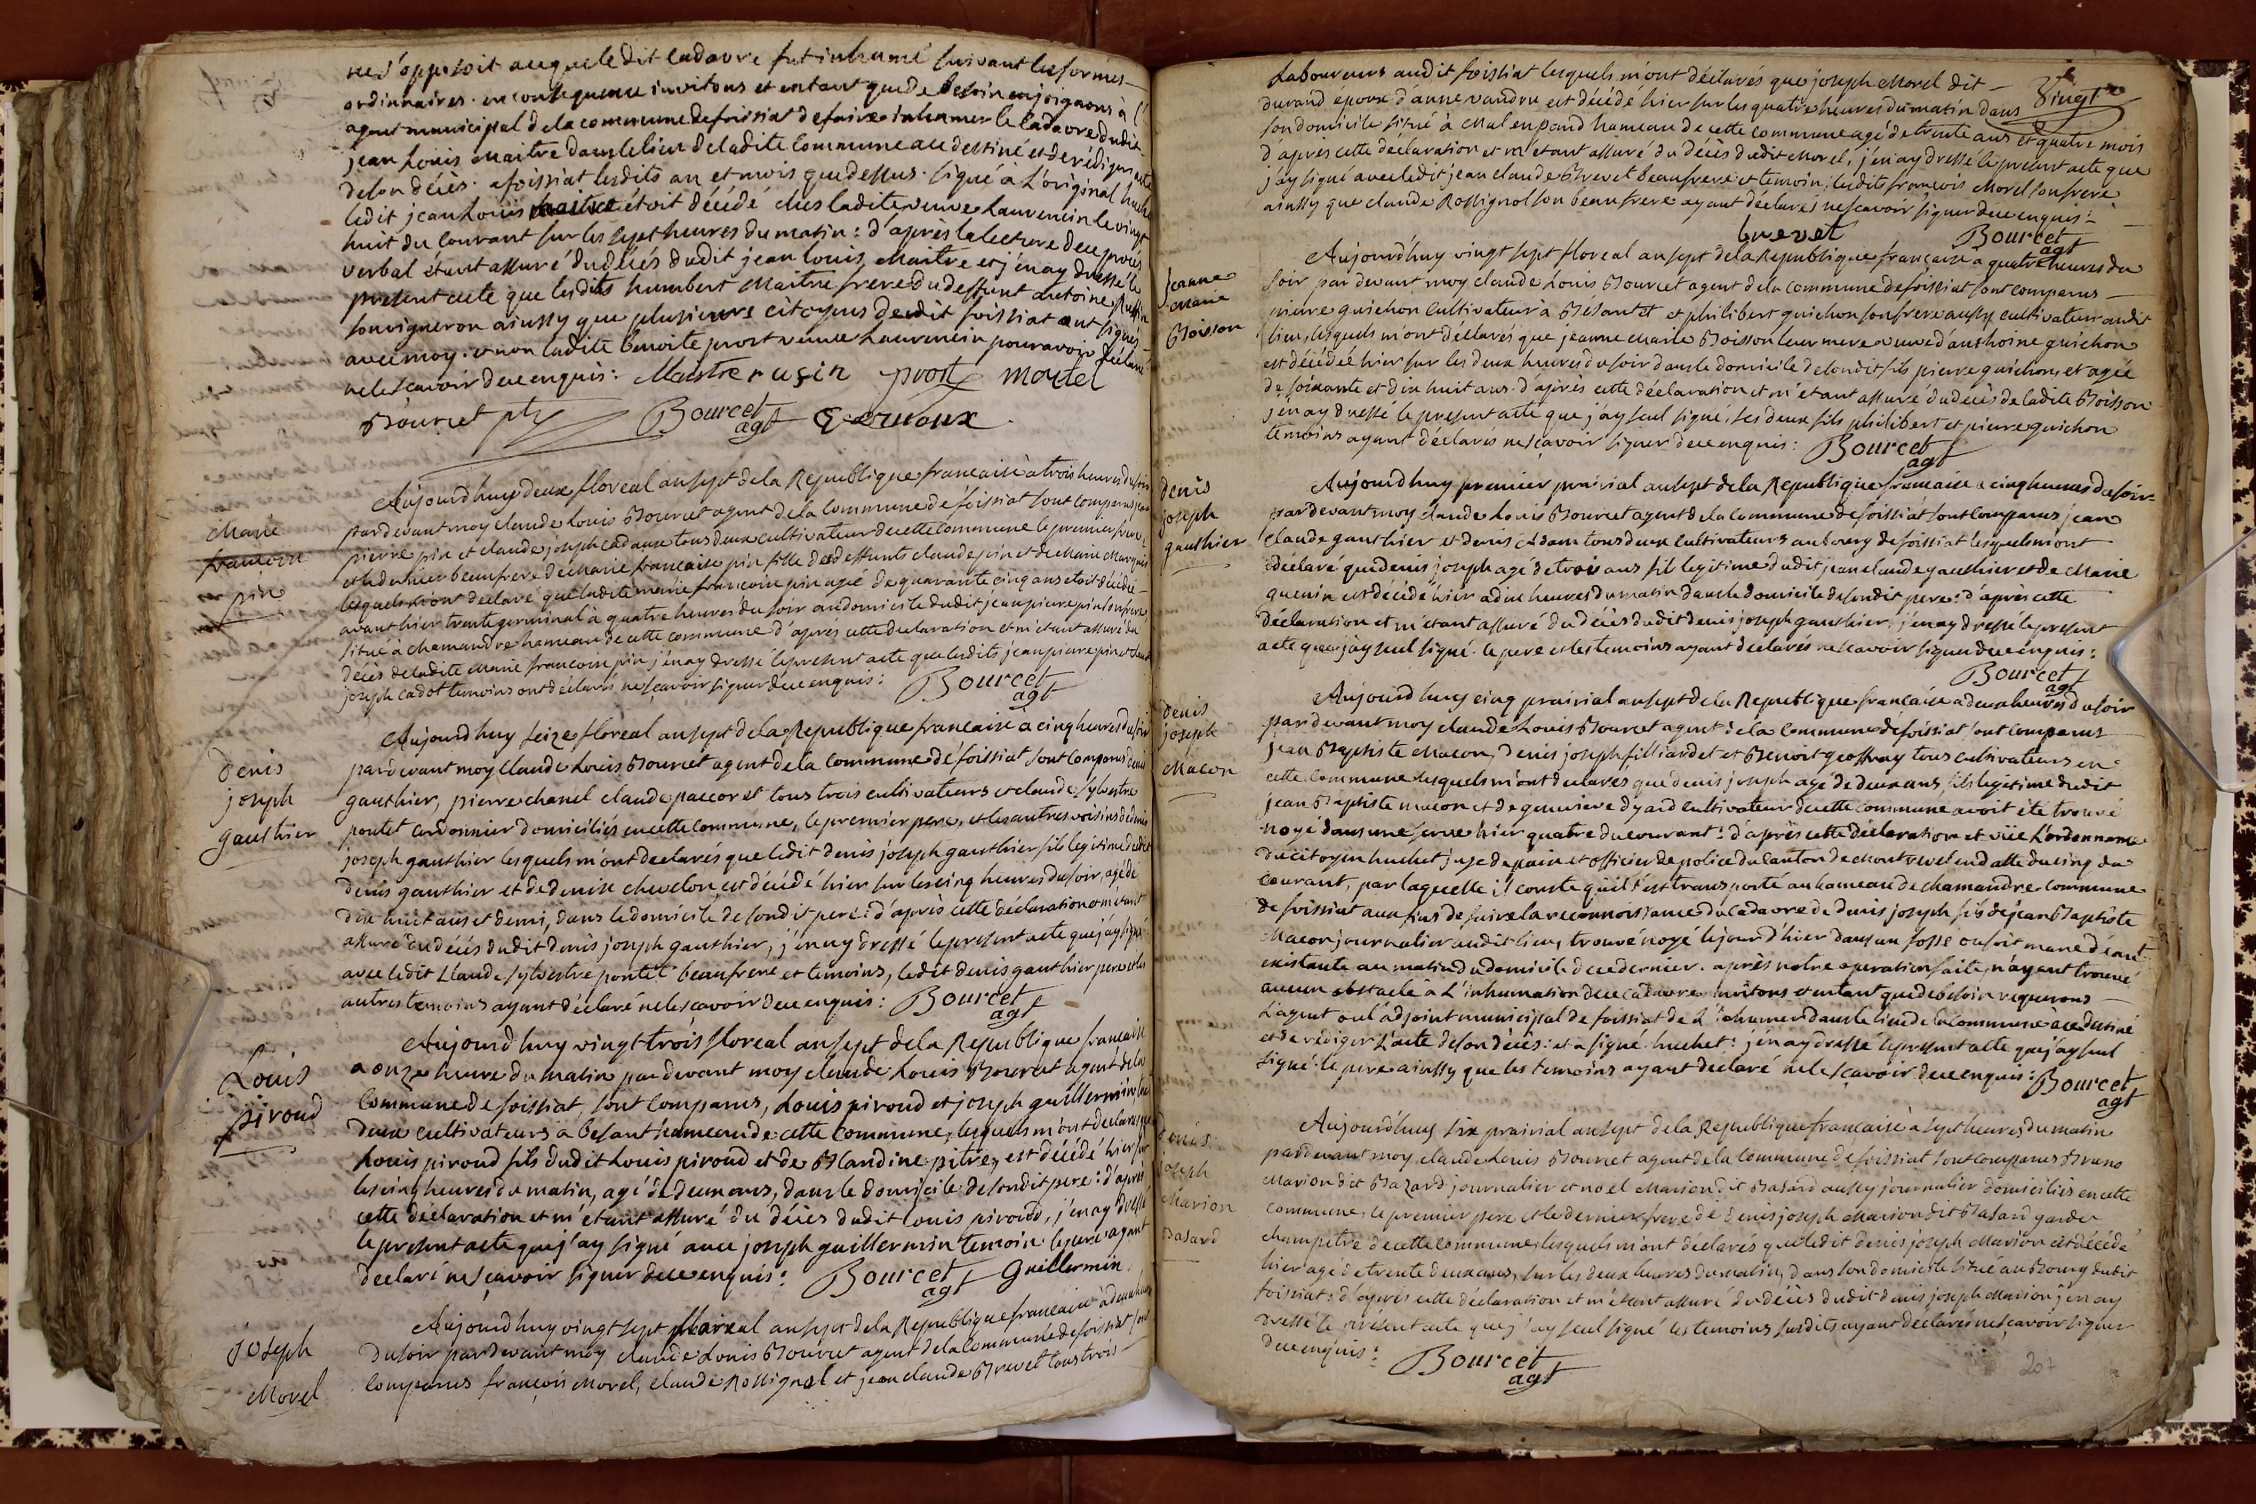 ne s'opposoit a ceque ledit cadavre fut inhumé suivant les formes
ordinnaires. en consequence invitons et entant que de besoin enjoignons à l'
agent municipal de la commune de foissiat de faire inhumer le cadavre dudit
jean Louis Maitre dans le lieu de ladite Commune a ce destiné et de rédiger acte
de son décès. a foissiat lesdits an et mois que dessus. signé a L'original huchet
ledit jean Louis maitre étoit décédé ches ladite veuve Laurencin le vingt
huit du Courant sur les sept heures du matin: d'après la lecture de ce procès
verbal étant assuré du décès dudit jean louis Maitre et j'en ay dressé le
present acte que lesdits humbert Maitre frere du deffunt antoine Russin
son vigneron ainssy que plusieurs citoyens dudit foissiat ont signés
avec moy. et non ladite benoite prost veuve Laurencin pour avoir déclaré
ne le scavoir de ce enquis: Maistre rusin prost moyret
Bourcet Bourcet agt Vernoux
Marie
francoise
pin
Aujourd'huy deux floreal an sept de la Republique francaise à trois heures du soir
pardevant moy Claude Louis Bourcet agent de la commune de foissiat sont comparus jean
pierre pin et claude joseph cadot tous deux cultivateur de cette commune le premier frere,
et le dernier beaufrere de Marie francoise pin fille des deffunts claude pin et de Marie Marguin
lesquels m'ont déclaré que ladite marie francoise pin agé de quarante cinq ans etoit décédée
avant hier trente germinal à quatre heures du soir au domicile dudit jean pierre pin son frere,
situé à chamandre hameau de cette commune d'après cette declaration et m'étant assuré du
décès de ladite Marie francoise pin j'en ay dressé le present acte que lesdits jean pierre pin et claude
joseph cadot temoins ont déclarés ne scavoir signer de ce enquis: Bourcet
agt
Denis
joseph
gauthier
Aujourd'huy seize floreal an sept de la Republique francaise a cinq heures du soir
pardevant moy Claude Louis Bourcet agent de la commune de foissiat sont comparus denis
gauthier, pierre chanel claude paccoret tous trois cultivateurs et claude sylvestre
pontet cordonnier domiciliés en cette commune, le premier pere, et les autres voisins de denis
joseph gauthier lesquels m'ont declarés que ledit denis joseph gauthier fils legitime dudit
Denis gauthier et de denise chevelon est décédé hier sur les cinq heures du soir, agé de
dix huit ans et demi, dans le domicile de son dit pere: d'après cette déclaration et m'etant
assuré du décès dudit denis joseph gauthier, j'en ay dressé le present acte que j'ay signé
avec ledit Claude sylvestre pontet beaufrere et temoins, ledit denis gauthier pere et les
autres temoins ayant déclaré ne le scavoir de ce enquis: Bourcet
agt
Louis
piroud
Aujourd'huy vingt trois floreal an sept de la Republique francaise
a onze heure du matin pardevant moy claude Louis Bourcet agent de la
Commune de foissiat, sont comparus, Louis piroud et joseph guillermin tous
deux cultivateurs a besant hameau de cette commune, lesquels m'ont declarés que
Louis piroud fils dudit Louis piroud et de Blandine pitre, est décédé hier sur
les cinq heures du matin, agé de deux ans, dans le domicile de son dit pere: d'après
cette declaration et m'étant assuré du décès dudit louis piroud, j'en ay dressé
le present acte que j'ay signé avec joseph guillermin temoin le pere ayant
déclaré ne scavoir signer de ce enquis: Bourcet Guillermin
agt
joseph
Morel
Aujourd'huy vingt sept floreal an sept de la Republique francaise à deux heures
du soir pardevant moy claude Louis Bourcet agent de la commune de foissiat sont
comparus françois Morel, claude Rossignol et jean claude Brevet tous trois
Vingt
Laboureurs audit foissiat lesquels m'ont déclarés que joseph Morel dit
durand époux d'anne vandru est décédé hier sur les quatre heures du matin dans
son domicile situé à Malenpand hameau de cette commune agé de trente ans et quatre mois
d'après cette declaration et m'étant assuré du décès dudit Morel, j'en ay dressé le present acte que
j'ay signé avec ledit jean claude Brevet beaufrere et temoin, lesdits françois Morel son frere
ainssy que claude Rossignol son beaufrere ayant déclarés ne scavoir signer de ce enquis:
brevet Bourcet
agt
Jeanne
Marie
Boisson
Aujourd'huy vingt sept floreal an sept de la Republique française a quatre heures du
soir pardevant moy claude Louis Bourcet agent de la commune de foissiat sont comparus
pierre guichon Cultivateur à Bésantet et philibert guichon son frere aussy cultivateur audit
lieu, lesquels m'ont déclarés que jeanne Marie Boisson leur mere veuve d'anthoine guichon
est décédée hier sur les deux heures du soir dans le domicile de son dit fils pierre guichon, et agée
de soixante et dix huit ans. d'après cette déclaration et m'étant assuré du décès de ladite Boisson
j'en ay dressé le present acte que j'ay seul signé, ses deux fils philibert et pierre guichon
temoins ayant déclarés ne scavoir signer de ce enquis: Bourcet
agt
Denis
joseph
gauthier
Aujourd'huy premier prairial an sept de la Republique francaise a cinq heures du soir
pardevant moy claude Louis Bourcet agent de la commune de foissiat sont Comparus jean
Claude gauthier et denis Adam tous deux cultivateurs au bourg de foissiat lesquels m'ont
déclaré que denis joseph agé de trois ans fils legitime dudit jean claude gauthier et de Marie
guenin est décédé hier a dix heures du matin dans le domicile de son dit pere: d'après cette
déclaration et m'étant assuré du décès dudit denis joseph gauthier, j'en ay dressé le present
acte que j'ay seul signé. le pere et les temoins ayant declarés ne scavoir signer de ce enquis:
Bourcet
agt
Denis
joseph
Macon
Aujourd'huy cinq prairial an sept de la Republique francaise a deux heures du soir
pardevant moy claude Louis Bourcet agent de la Commune de foissiat sont comparus
jean Baptiste Macon, Denis joseph filliardet et Benoit geoffray tous cultivateurs en
cette commune lesquels m'ont declarés que denis joseph agé de deux ans, fils legitime dudit
jean Baptiste macon et de genevieve dyard cultivateur de cette commune avoit été trouvé
noyé dans une serve hier quatre du courant: d'après cette déclaration et vüe L'ordonnance
du citoyen huchet juge de paix et officier de police du Canton de Montrevel en datte du cinq du
courant, par laquelle il conste qu'il s'est transporté au hameau de chamandre commune
de foissiat aux fins de faire la reconnoissance du Cadavre de denis joseph fils de jean Baptiste
Macon journalier audit lieu, trouvé noyé le jour d'hier dans un fossé ou soit mare d'eau
existante au matin du domicile de ce dernier. après notre operation faite, n'ayant trouvé
aucun obstacle à L'inhumation de ce cadavre invitons et entant que de besoin requerons
L'agent ou l'adjoint municipal de foissiat de L'inhumer dans le lieu de la commune à ce destiné
et de rédiger L'acte de son décès: et a signé huchet: j'en ay dressé le present acte que j'ay seul
signé. le pere ainssy que les temoins ayant déclaré ne le scavoir de ce enquis: Bourcet
agt
Denis
joseph
Marion
Basard
Aujourd'huy six prairial an sept de la Republique francaise à sept heures du matin
pardevant moy claude Louis Bourcet agent de la commune de foissiat sont comparus Bruno
Marion dit Bazard journalier et noel Marion dit Basard aussy journalier domiciliés en cette
commune, le premier pere et le dernier frere de denis joseph Marion dit Basard garde
champetre de cette commune, lesquels m'ont déclarés que ledit denis joseph Marion est décédé
hier agé de trente deux ans, sur les deux heures du matin, dans son domicile situé au Bourg dudit
foissiat: d'après cette déclaration et m'étant assuré du décès dudit denis joseph Marion j'en ay
dressé le présent acte que j'ay seul signé les temoins susdits ayant declarés ne scavoir signer
de ce enquis: Bourcet
agt
207